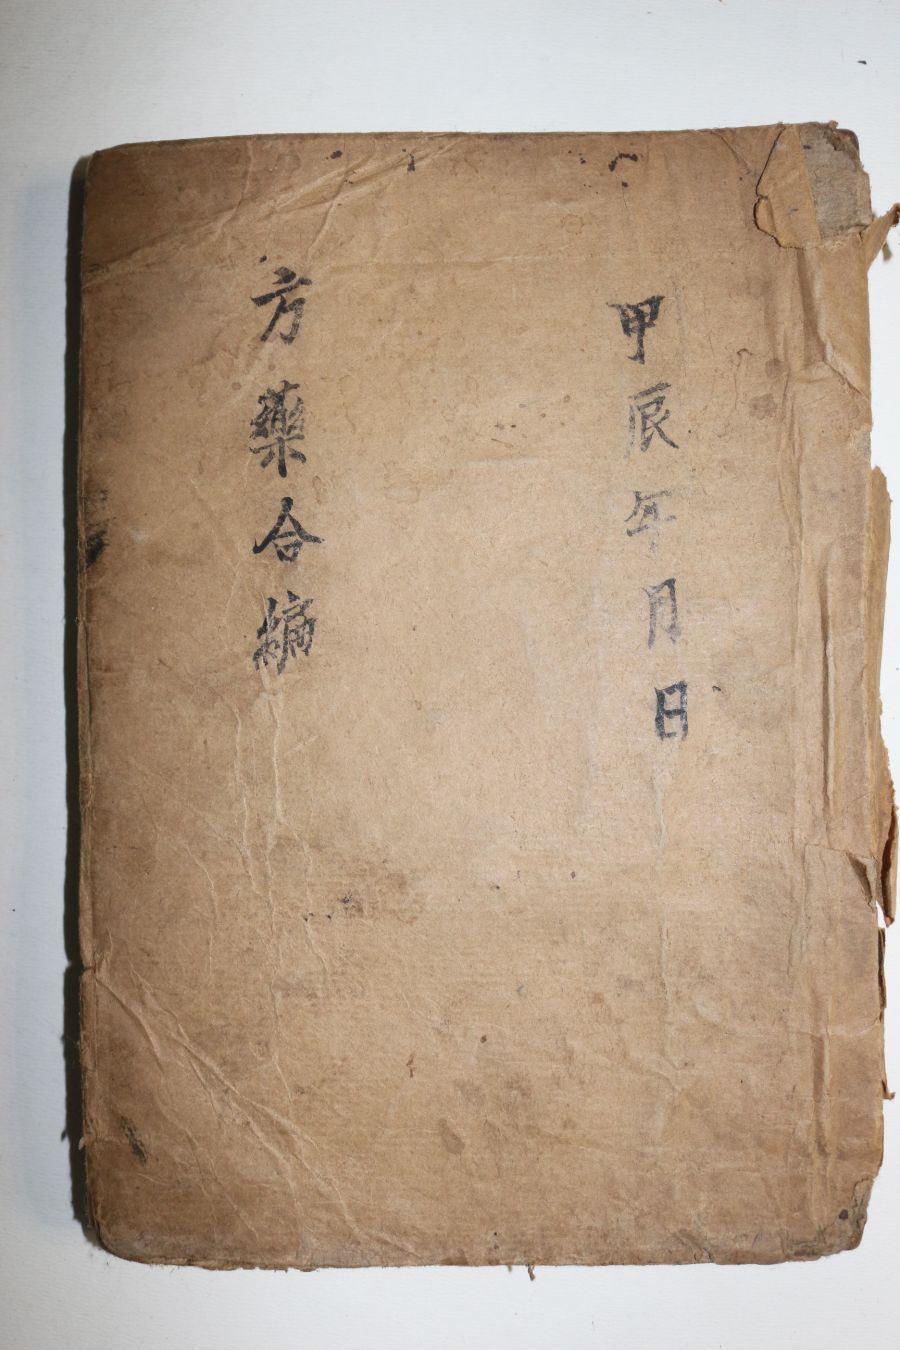 甲辰年月日
方藥合編